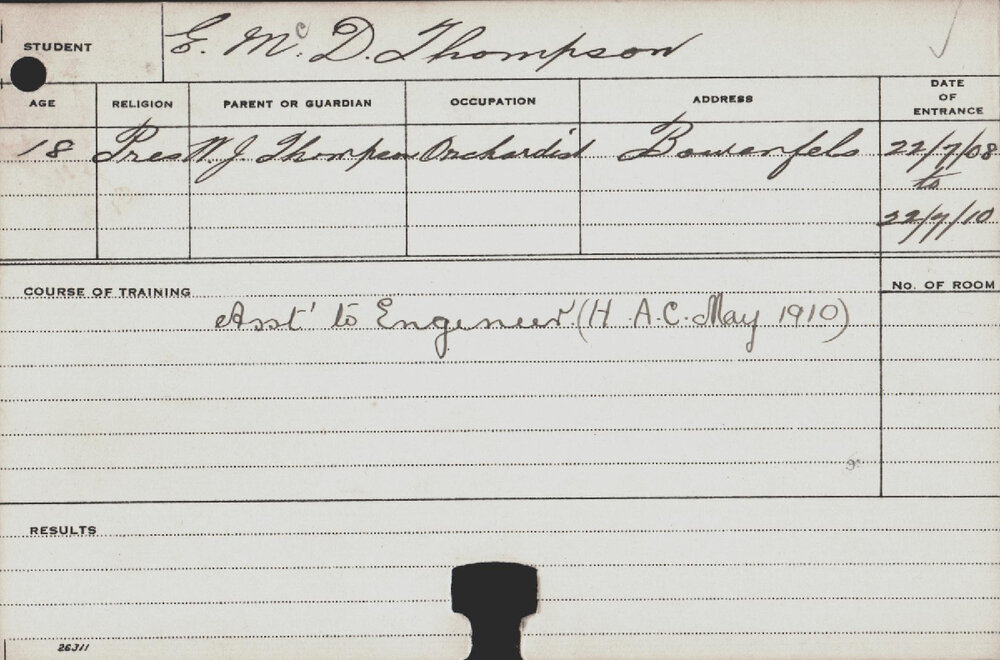 STUDENT E. Mc. D. Thompson
AGE RELIGION PARENT OR GUARDIAN OCCUPATION ADDRESS DATE OF ENTRANCE
18 Pres W. J. Thompson Orchardist Bowenfels 22/7/08
to
22/7/10
COURSE OF TRAINING No. OF ROOM
Asst' to Engineer (H. A. C. May 1910)
RESULTS
26J11